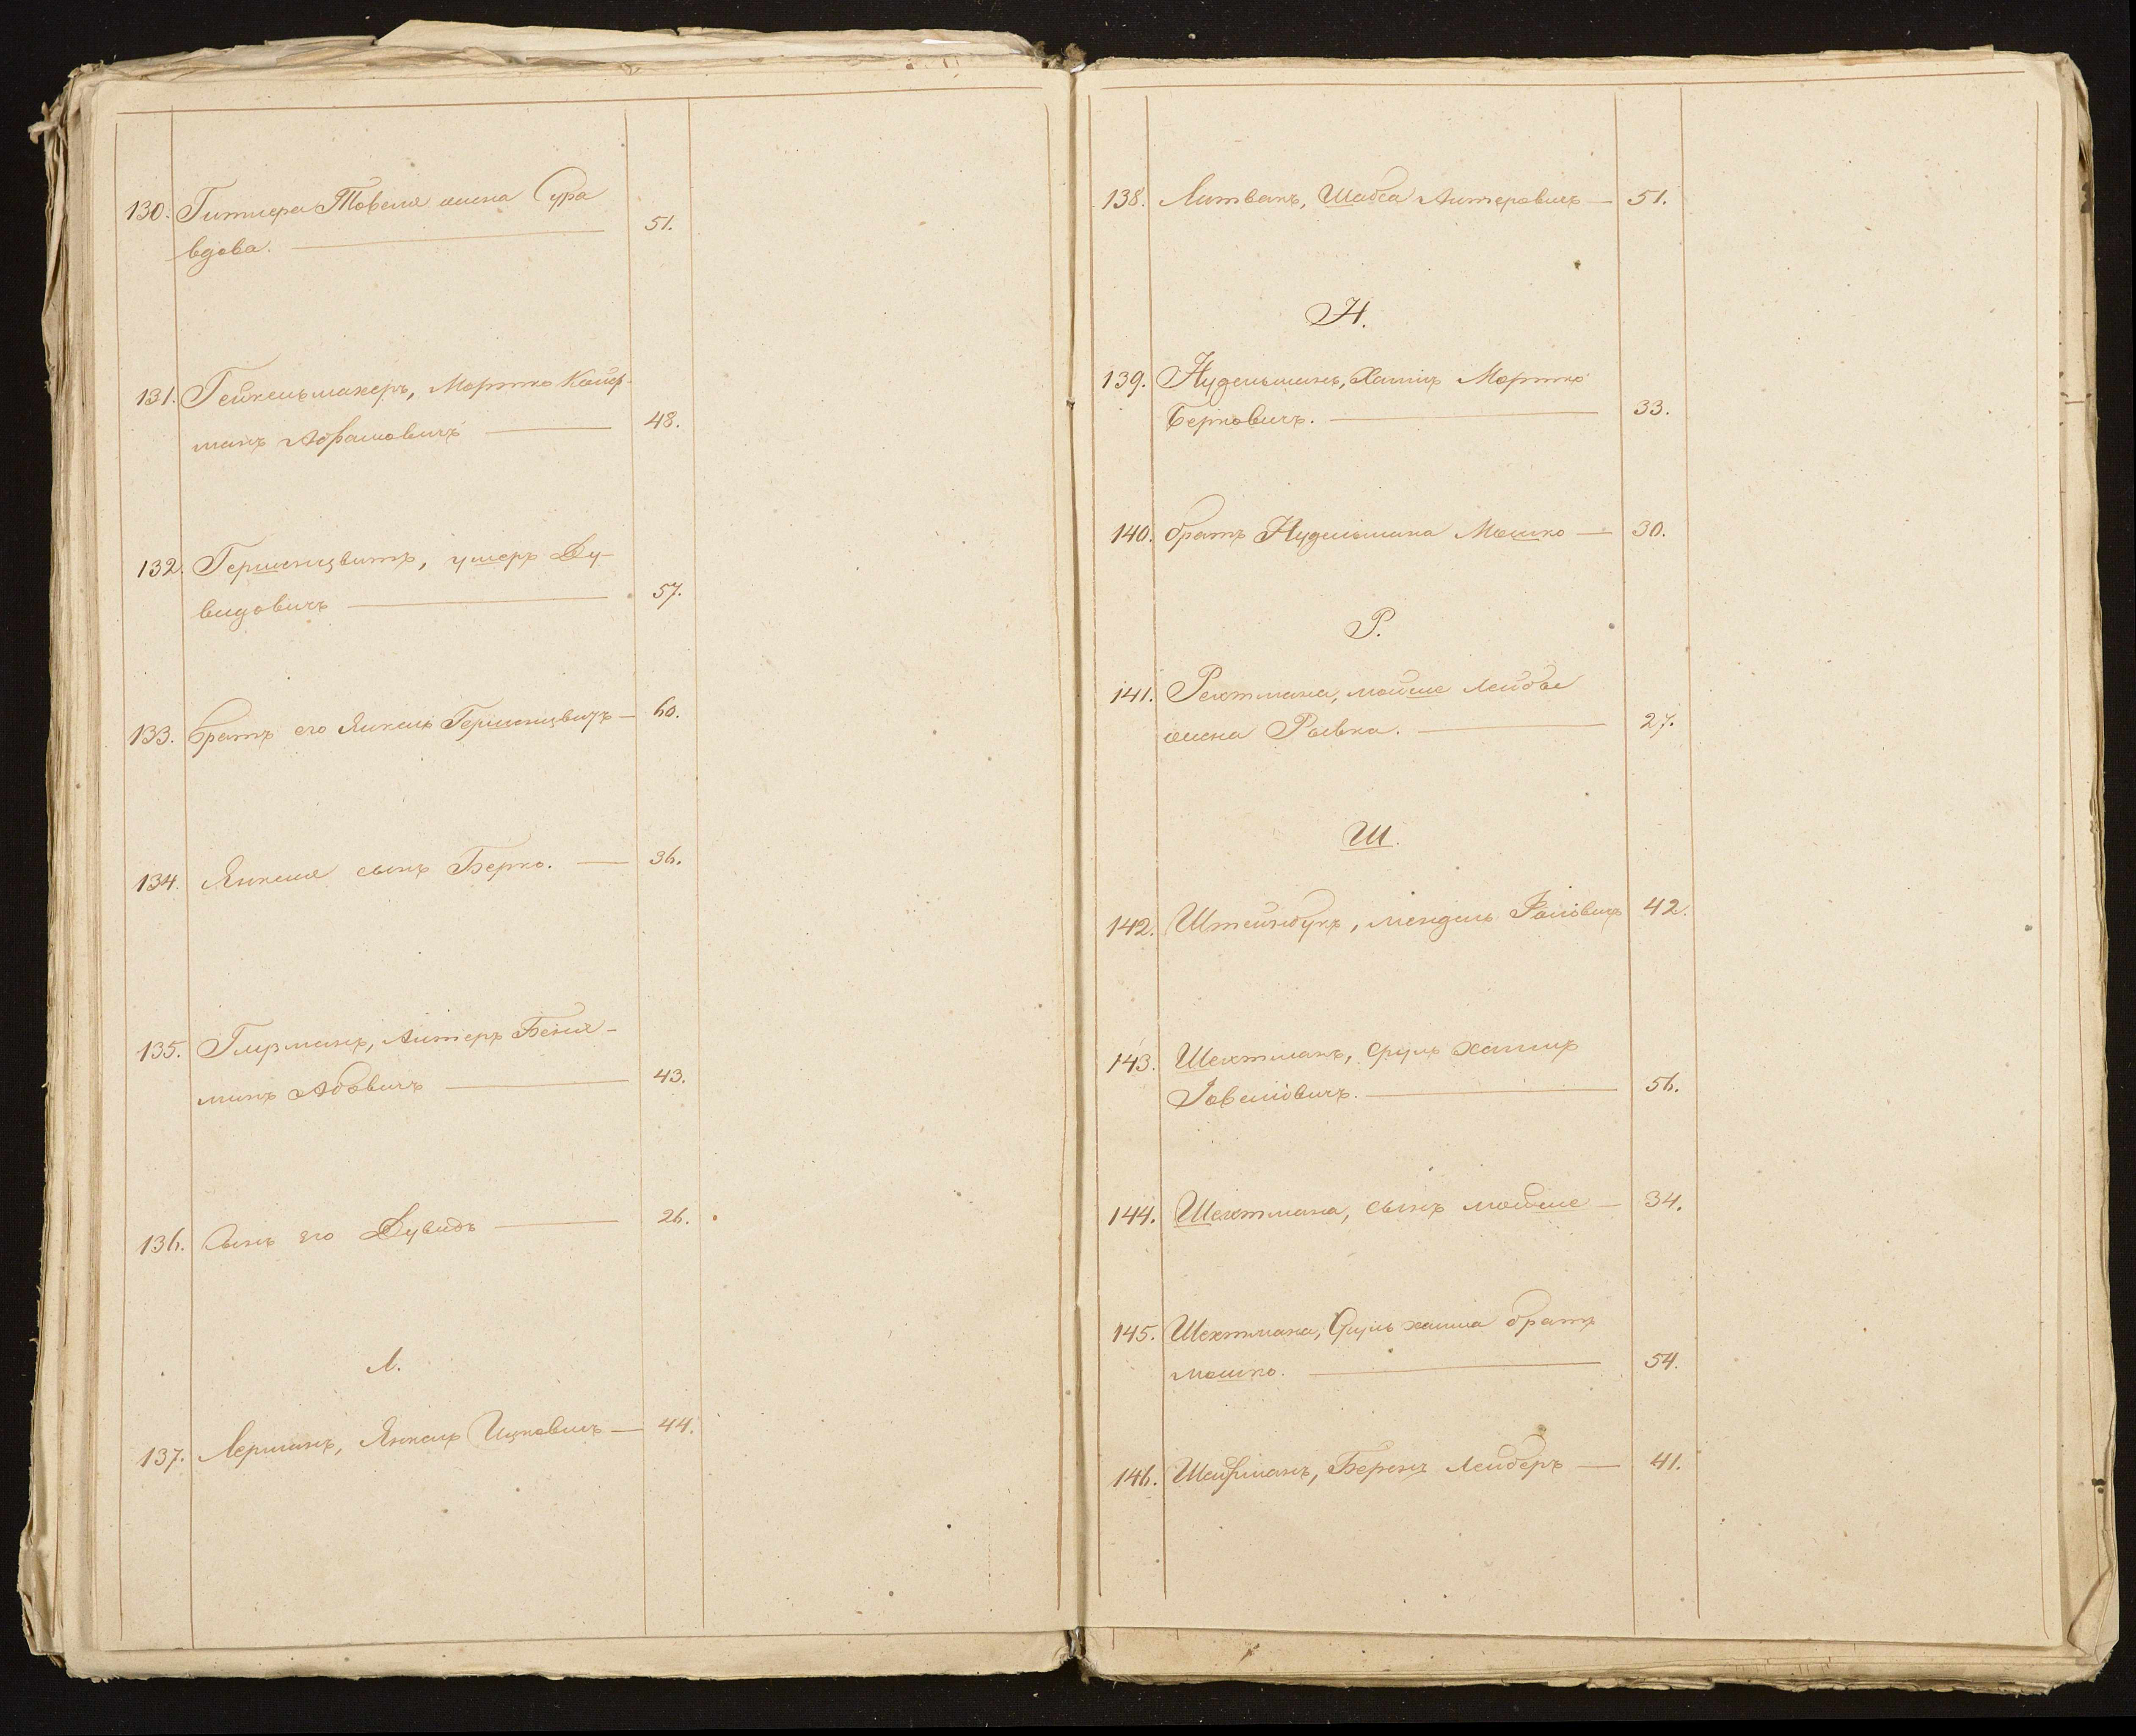 130. Гитлера Товеля жена Сура
вдова. — 51.
131. Гейкельмахеръ, Мортко Кауф-
манъ Абрамовичъ — 48.
132. Гершенцвитъ, умеръ Ду-
видовичъ — 57.
133. Братъ его Янкель Гершенцвитъ — 60.
134. Янкеля сынъ Берко. — 36.
135. Глузманъ, Литеръ Беня-
минъ Абовичъ — 43.
136. Сынъ его Дувидъ — 26.
Л.
137. Лерманъ, Янкель Ицковичъ — 44.
138. Литвакъ, Шабса Литеровичъ — 51.
Н.
139. Нудельманъ, Хаимъ Мортко
Берковичъ. — 33.
140. братъ Нудельмана Мошко — 30.
Р.
141. Рехтмана, Мойше Лейбы
жена Рывка. — 27.
Ш.
142. Штейнбукъ, Мендель 42.
143. Шехтманъ, Сруль Хаимъ
— 56.
144. Шехтмана, сынъ Мойше — 34.
145. Шехтмана, Сруль Хаима братъ
Мошко. — 54.
146. Лейберъ — 41.